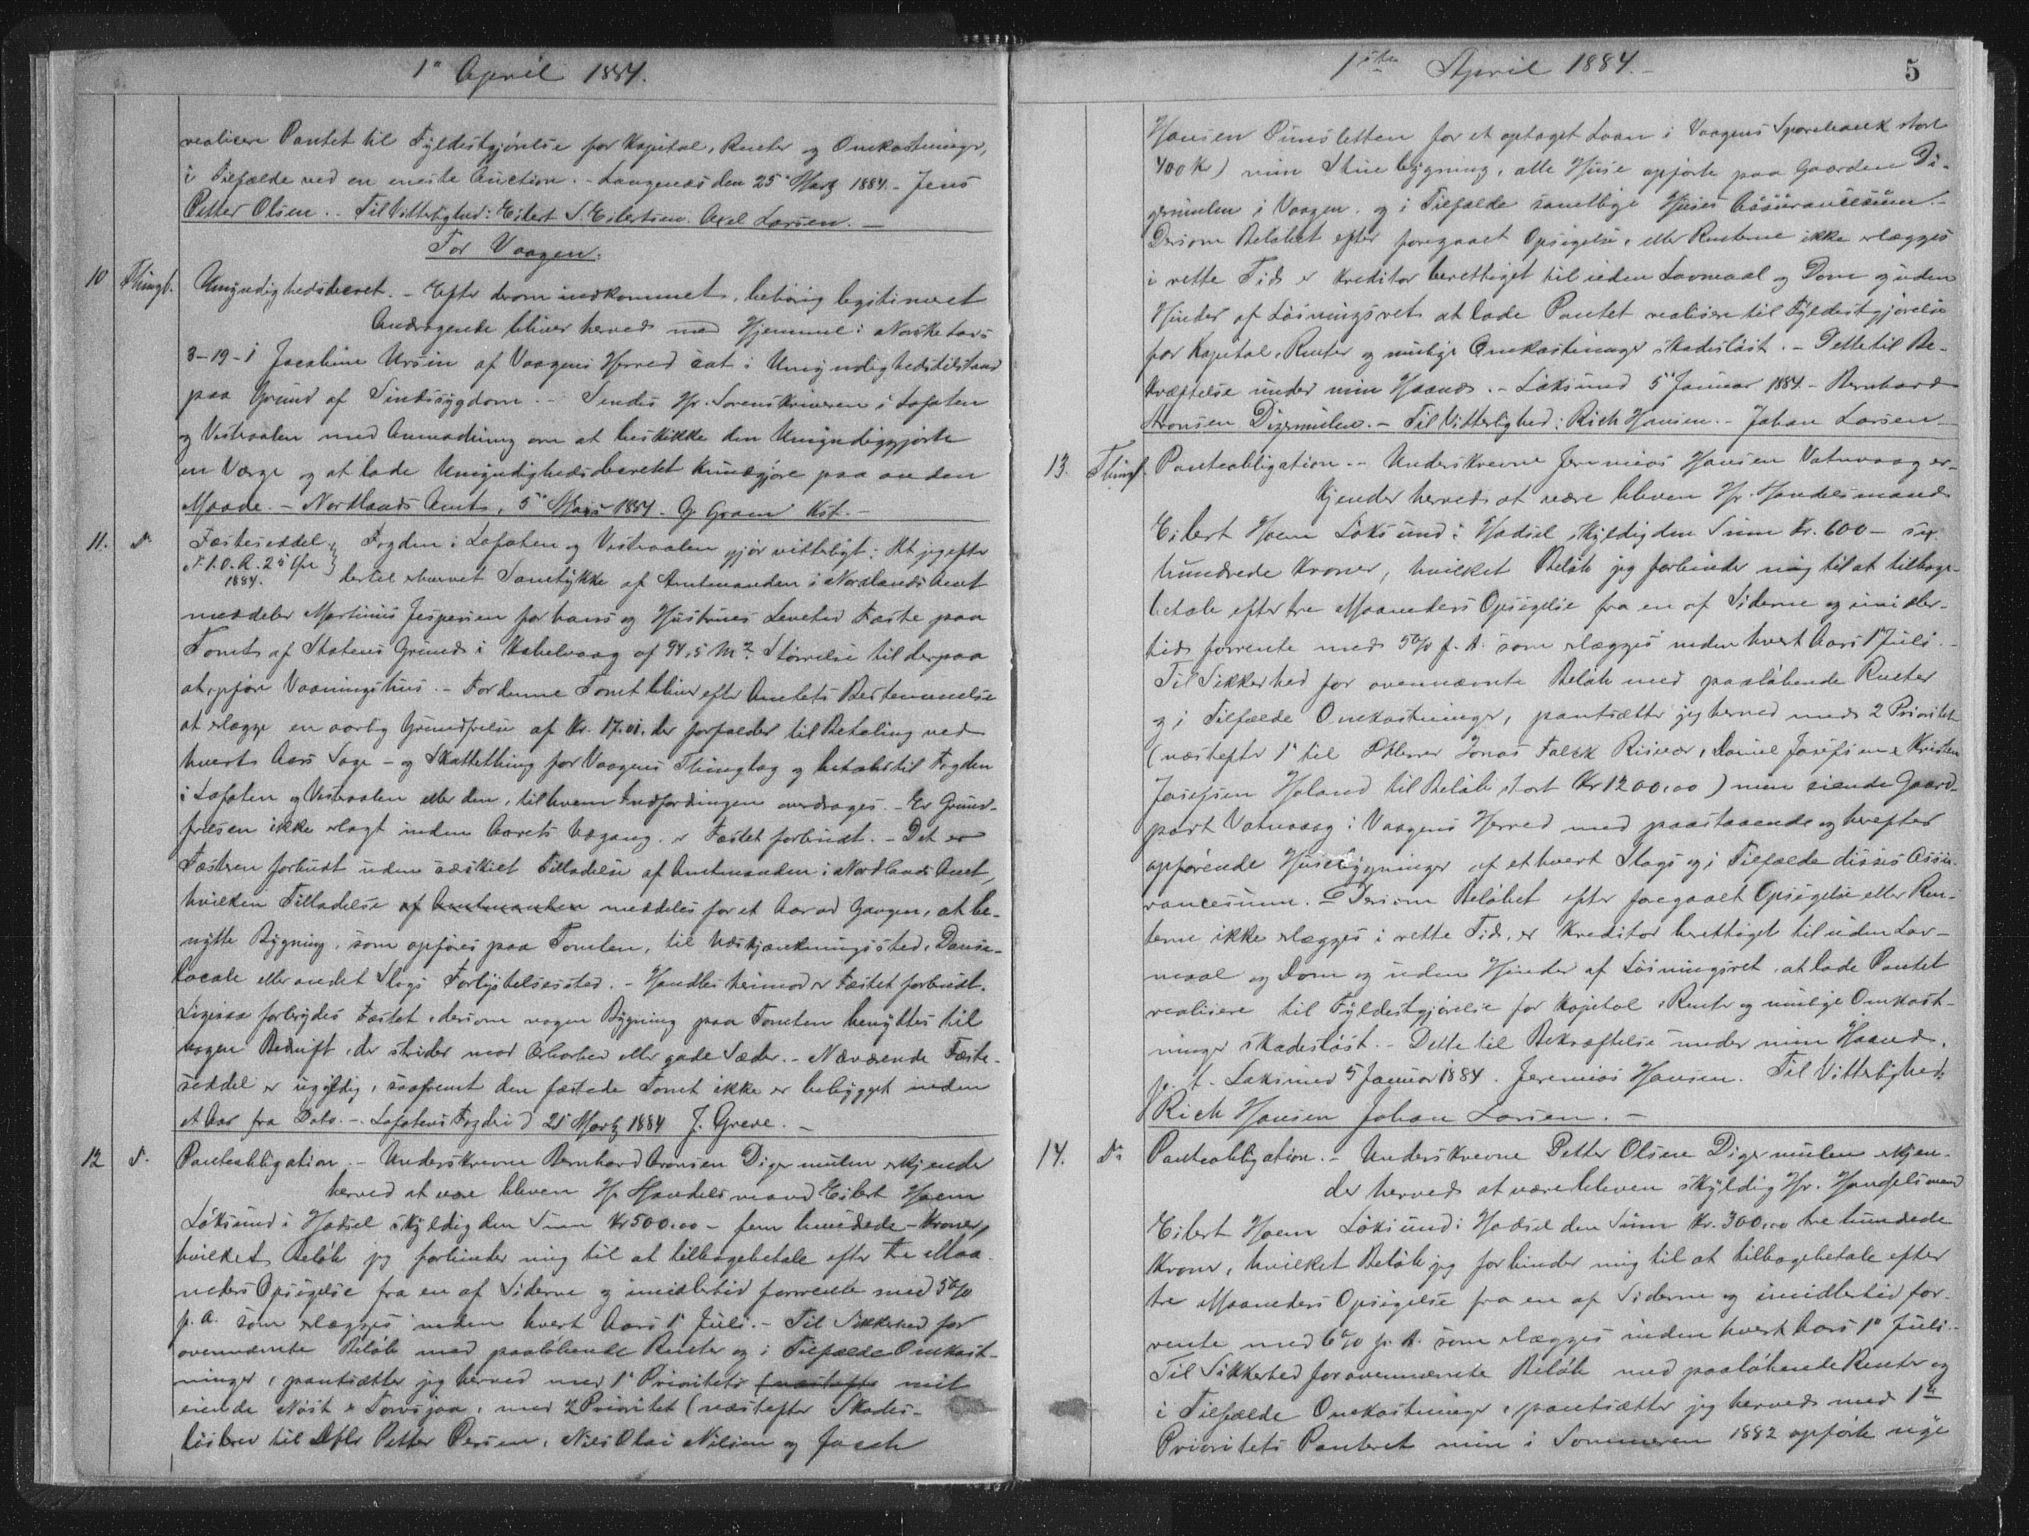 1ste April 1884.
realisere Pantet til Fyldestgjörelse for Kapital, Renter og Omkostninger,
i Tilfælde ved en eneste Auction. - Langenæs den 25de Marts 1884. - Jens
Petter Olsen. - Til Vitterlighed: Eilert S. Eilertsen. Axel Larsen. -
For Vaagen.
10 Thingl. Umyndighedsdecret. - Efter derom indkommet, behörig legitimeret
Andragende bliver herved med Hjemmel i Norske Lovs
3-19-1 Jacobine Ursin af Vaagens Herred sat i Umyndighedstilstand
paa Grund af Sindssygdom. - Sendes Hr. Sorenskriveren i Lofoten
og Vesteraalen med Anmodning om at beskikke den Umyndiggjorte
en Værge og at lade Umyndighedsdecretet kundgjöre paa anden
Maade. - Nordlands Amt, 5te Marts 1884. G. Gram Kst. -
11. Do Fæsteseddel. Fogden i Lofoten og Vesteraalen gjör vitterligt: At jeg efter
1884. dertil erhvervet Samtykke af Amtmanden i Nordlands Amt
meddeler Martinus Jespersen for hans og Hustrues Levetid Fæste paa
Tomt af Statens Grund i Kabelvaag af 94,5 M2 Störrelse til derpaa
at opföre Vaaningshus. - For denne Tomt bliver efter Amtets Bestemmelse
at erlægge en aarlig Grundfrelse af Kr. 17.01. der forfalder til Betaling ved
hvert Aars Sage- og Skattething for Vaagens Thinglag og betales til Fogden
i Lofoten og Vesteraalen eller den, til hvem Indfordringen overdrages. - Er Grund-
frelsen ikke erlagt inden Aarets Udgang, er Fæstet forbrudt. - Det er
Fæsteren forbudt uden særskilt Tilladelse af Amtmanden i Nordlands Amt,
hvilken Tilladelse af Amtmanden meddeles for et Aar ad Gangen, at be-
nytte Bygning, som opföres paa Tomten, til Udskjænkningssted, Danse-
locale eller andet Slags Forlystelsessted. - Handles herimod er Fæstet forbrudt.
Ligesaa forbrydes Fæstet, dersom nogen Bygning paa Tomten benyttes til
nogen Bedrift, der strider mod Ærbarhed eller gode Sæder. - Nærværende Fæste-
seddel er ugyldig, saafremt den fæstede Tomt ikke er bebygget inden
et Aar fra Dato. - Lofotens Fogderi d 25 Marts 1884 J. Greve. -
12 Do Panteobligation. - Underskrevne Bernhard Aronsen Digermulen erkjender
herved at være bleven Hr. Handelsmand Eilert Hoem
Löksund i Hadsel skyldig den Sum Kr 500.00 - fem hundrede - Kroner,
hvilket Belöb jeg forbinder mig til at tilbagebetale efter tre Maa-
neders Opsigelse fra en af Siderne og imidlertid forrente med 5%
p. A. som erlægges inden hvert Aars 1ste Juli. - Til Sikkerhed for
ovennævnte Belöb med paalöbende Renter og i Tilfælde Omkost-
ninger, pantsætter jeg herved med 1ste Prioritets (næstefter mit
eiende Nöst & Torvsjaa, med 2 Prioritet (næstefter Skades-
lösbrev til Petter Persen, Niels Olai Nilsen og Jacob
1ste April 1884. - 5
Hansen Finsletten for et optaget Laan i Vaagens Sparebank stort
400 Kr) min Stuebygning, alle Huse opförte paa Gaarden Di-
germulen i Vaagen og i Tilfælde samtlige Huses Assurancesum. -
Dersom Belöbet efter foregaaet Opsigelse, eller Renterne ikke erlægges
i rette Tid er Kreditor berettiget til uden Lovmaal og Dom og uden
Hinder af Lösningsret at lade Pantet realisere til Fyldestgjörelse
for Kapital, Renter og mulige Omkostninger skadeslöst. - Dette til Be-
kræftelse under min Haand. - Löksund 5te Januar 1884. - Bernhard
Aronsen Digermulen. - Til Vitterlighed: Rich Hansen. - Johan Larsen. -
13. Thingl. Panteobligation. - Underskrevne Jeremias Hansen Vatnvaag er-
kjender herved at være bleven Hr. Handelsmand
Eilert Hoem Löksund i Hadsel skyldig den Sum Kr. 600 - sex
hundrede Kroner, hvilket Belöb jeg forbinder mig til at tilbage-
betale efter tre Maaneders Opsigelse fra en af Siderne og imidler-
tid forrente med 5% p. A. som erlægges inden hvert Aars 1ste Juli. -
Til Sikkerhed for ovennævnte Belöb med paalöbende Renter
og i Tilfælde Omkostninger, pantsætter jeg herved med 2 Prioritet
(næstefter 1ste til Jonas Falck Risvær, Daniel Josefsen & Kristen
Josefsen Holand til Belöb stort Kr 1200,00) min eiende Gaard-
part Vatnvaag i Vaagens Herred med paastaaende og herefter
opförende Husebygninger af ethvert Slags og i Tilfælde disses Assu-
rancesum. Dersom Belöbet efter foregaaet Opsigelse eller Ren-
terne ikke erlægges i rette Tid, er Kreditor berettiget til uden Lov-
maal og Dom og uden Hinder af Lösningsret at lade Pantet
realisere til Fyldestgjörelse for Kapital, Renter og mulige Omkost-
ninger skadeslöst. - Dette til Bekræftelse under min Haand.
p. t. Löksund 5 Januar 1884. Jeremias Hansen. Til Vitterlighed:
Rich Hansen Johan Larsen. -
14. Do Panteobligation. - Underskrevne Petter Olsen Digermulen erkjen-
der herved at være bleven skyldig Hr. Handelsmand
Eilert Hoem Löksund i Hadsel den Sum Kr. 300,00 tre hundrede
Kroner, hvilket Belöb jeg forbinder mig til at tilbagebetale efter
tre Maaneders Opsigelse fra en af Siderne og imidlertid for-
rente med 6% p. A. som erlægges inden hvert Aars 1ste Juli. -
Til Sikkerhed for ovennævnte Belöb med paalöbende Renter og
i Tilfælde Omkostninger, pantsætter jeg herved med 1ste
Prioritets Panteret min i Sommeren 1882 opförte nye